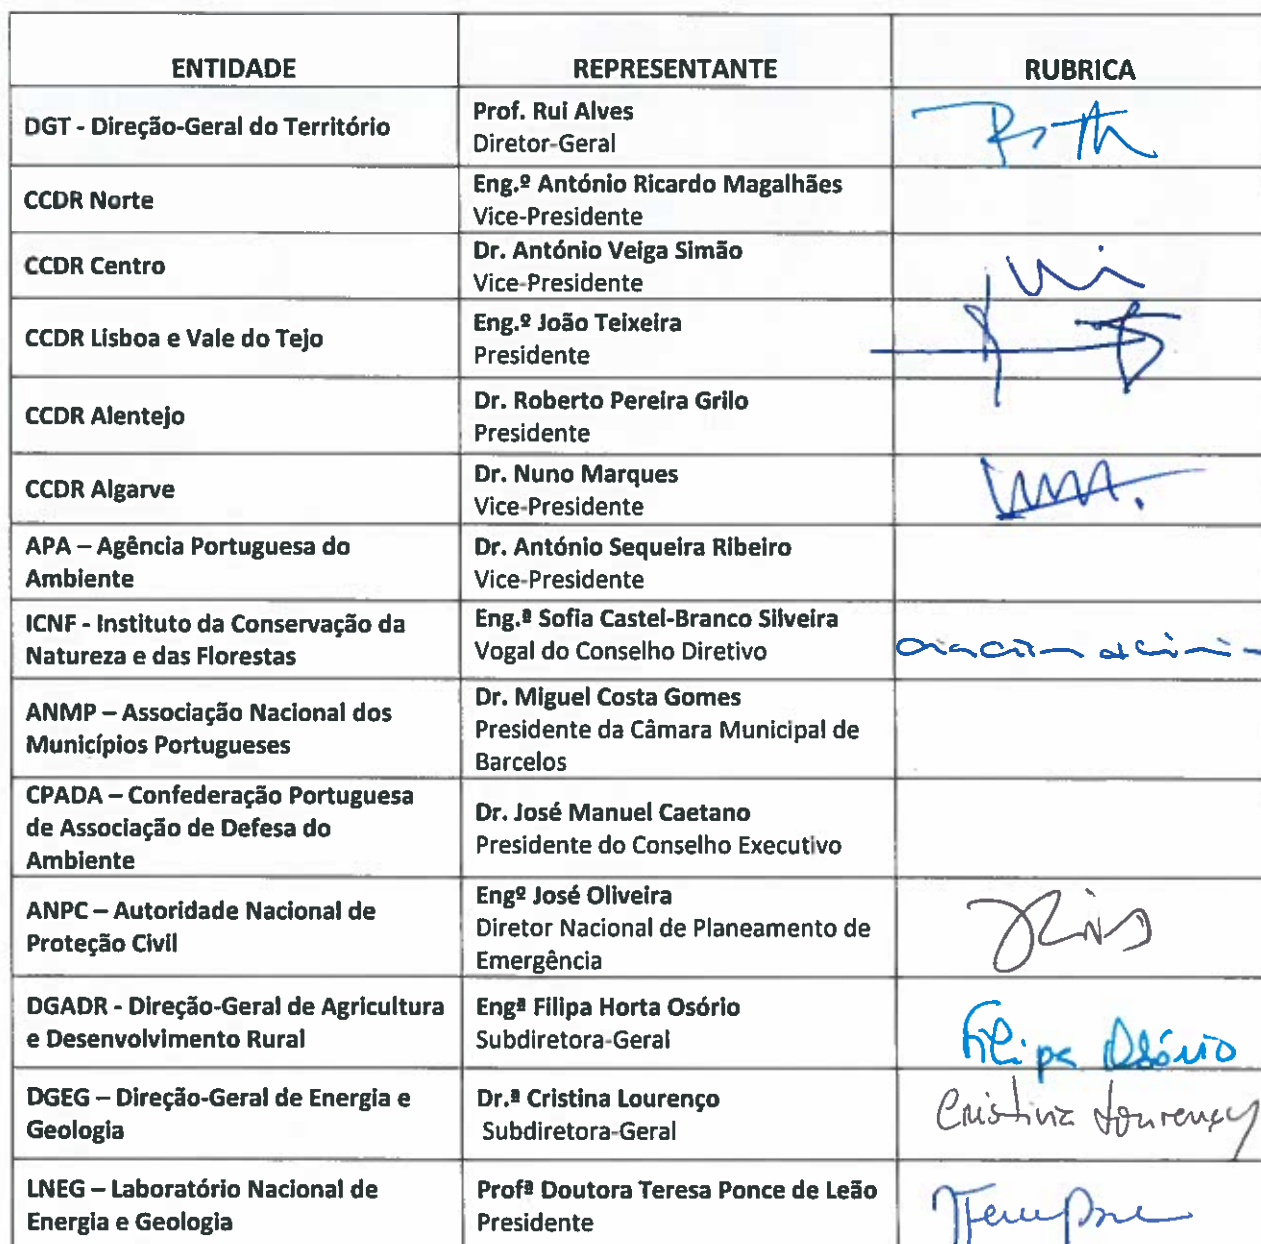 ENTIDADE REPRESENTANTE RUBRICA
DGT - Direção-Geral do Território
Prof. Rui Alves
Diretor-Geral
CCDR Norte
Eng.º António Ricardo Magalhães
Vice-Presidente
CCDR Centro
Dr. António Veiga Simão
Vice-Presidente
CCDR Lisboa e Vale do Tejo
Eng.º João Teixeira
Presidente
CCDR Alentejo
Dr. Roberto Pereira Grilo
Presidente
CCDR Algarve
Dr. Nuno Marques
Vice-Presidente
APA – Agência Portuguesa do
Ambiente
Dr. António Sequeira Ribeiro
Vice-Presidente
ICNF - Instituto da Conservação da
Natureza e das Florestas
Eng.ª Sofia Castel-Branco Silveira
Vogal do Conselho Diretivo
ANMP – Associação Nacional dos
Municípios Portugueses
Dr. Miguel Costa Gomes
Presidente da Câmara Municipal de
Barcelos
CPADA – Confederação Portuguesa
de Associação de Defesa do
Ambiente
Dr. José Manuel Caetano
Presidente do Conselho Executivo
ANPC – Autoridade Nacional de
Proteção Civil
Engº José Oliveira
Diretor Nacional de Planeamento de
Emergência
DGADR - Direção-Geral de Agricultura
e Desenvolvimento Rural
Engª Filipa Horta Osório
Subdiretora-Geral
Filipa Osório
DGEG – Direção-Geral de Energia e
Geologia
Dr.ª Cristina Lourenço
Subdiretora-Geral
Cristina Lourenço
LNEG – Laboratório Nacional de
Energia e Geologia
Profª Doutora Teresa Ponce de Leão
Presidente